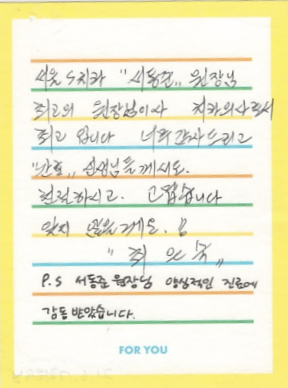 서울 S치과 "서동준" 원장님
최고의 원장님이사 치과의사로서
최고 입니다 너무감사드리고
"간호" 선생님들께서도.
친절하시고. 고맙습니다
잊지 않을게요. !!
P.S 서동준 원장님 양심적인 진료에
감동받았습니다.
FOR YOU